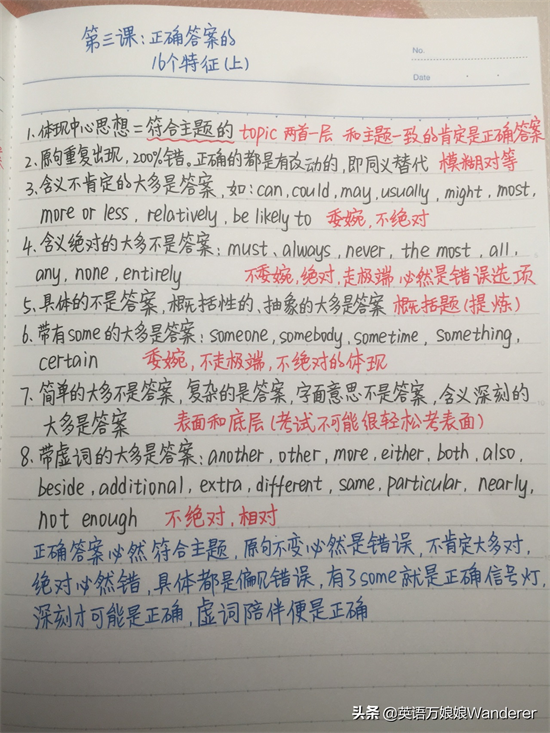 第三课：正确答案的
16个特征(上)
No.
Date
1. 体现中心思想=符合主题的 topic 两首一层 和主题一致的肯定是正确答案
2. 原句重复出现，200%错。正确的都是有改动的，即同义替代 模糊对等
3. 含义不肯定的大多是答案，如：can, could, may, usually, might, most,
more or less, relatively, be likely to 委婉，不绝对
4. 含义绝对的大多不是答案：must、always, never, the most, all,
any, none, entirely 不委婉，绝对，走极端，必然是错误选项
5. 具体的不是答案，概括性的、抽象的大多是答案 概括题(提炼)
6. 带有some的大多是答案：someone, somebody, sometime, something,
certain 委婉，不走极端，不绝对的体现
7. 简单的大多不是答案，复杂的是答案，字面意思不是答案，含义深刻的
大多是答案 表面和底层(考试，不可能很轻松考表面)
8. 带虚词的大多是答案：another, other, more, either, both, also,
beside, additional, extra, different, same, particular, nearly,
not enough 不绝对，相对
正确答案必然符合主题，原句不变必然是错误，不肯定大多对，
绝对必然错，具体都是偏见错误，有了some就是正确信号灯，
深刻才可能是正确，虚词陪伴便是正确
头条 @英语万娘娘Wanderer